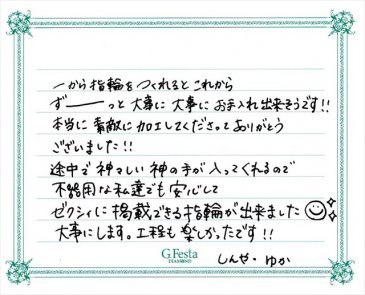 一から指輪をつくれると これから
ず――っと 大事に 大事に お手入れ出来そうです!!
本当に 素敵に 加工してくださって ありがとう
ございました!!
途中で 神々しい 神の手が 入ってくれるので
不器用な私達でも 安心して
ゼクシィに 掲載できる 指輪が出来ました
大事にします。工程も 楽しかったです!!
G.Festa
DIAMOND
しんや・ゆか